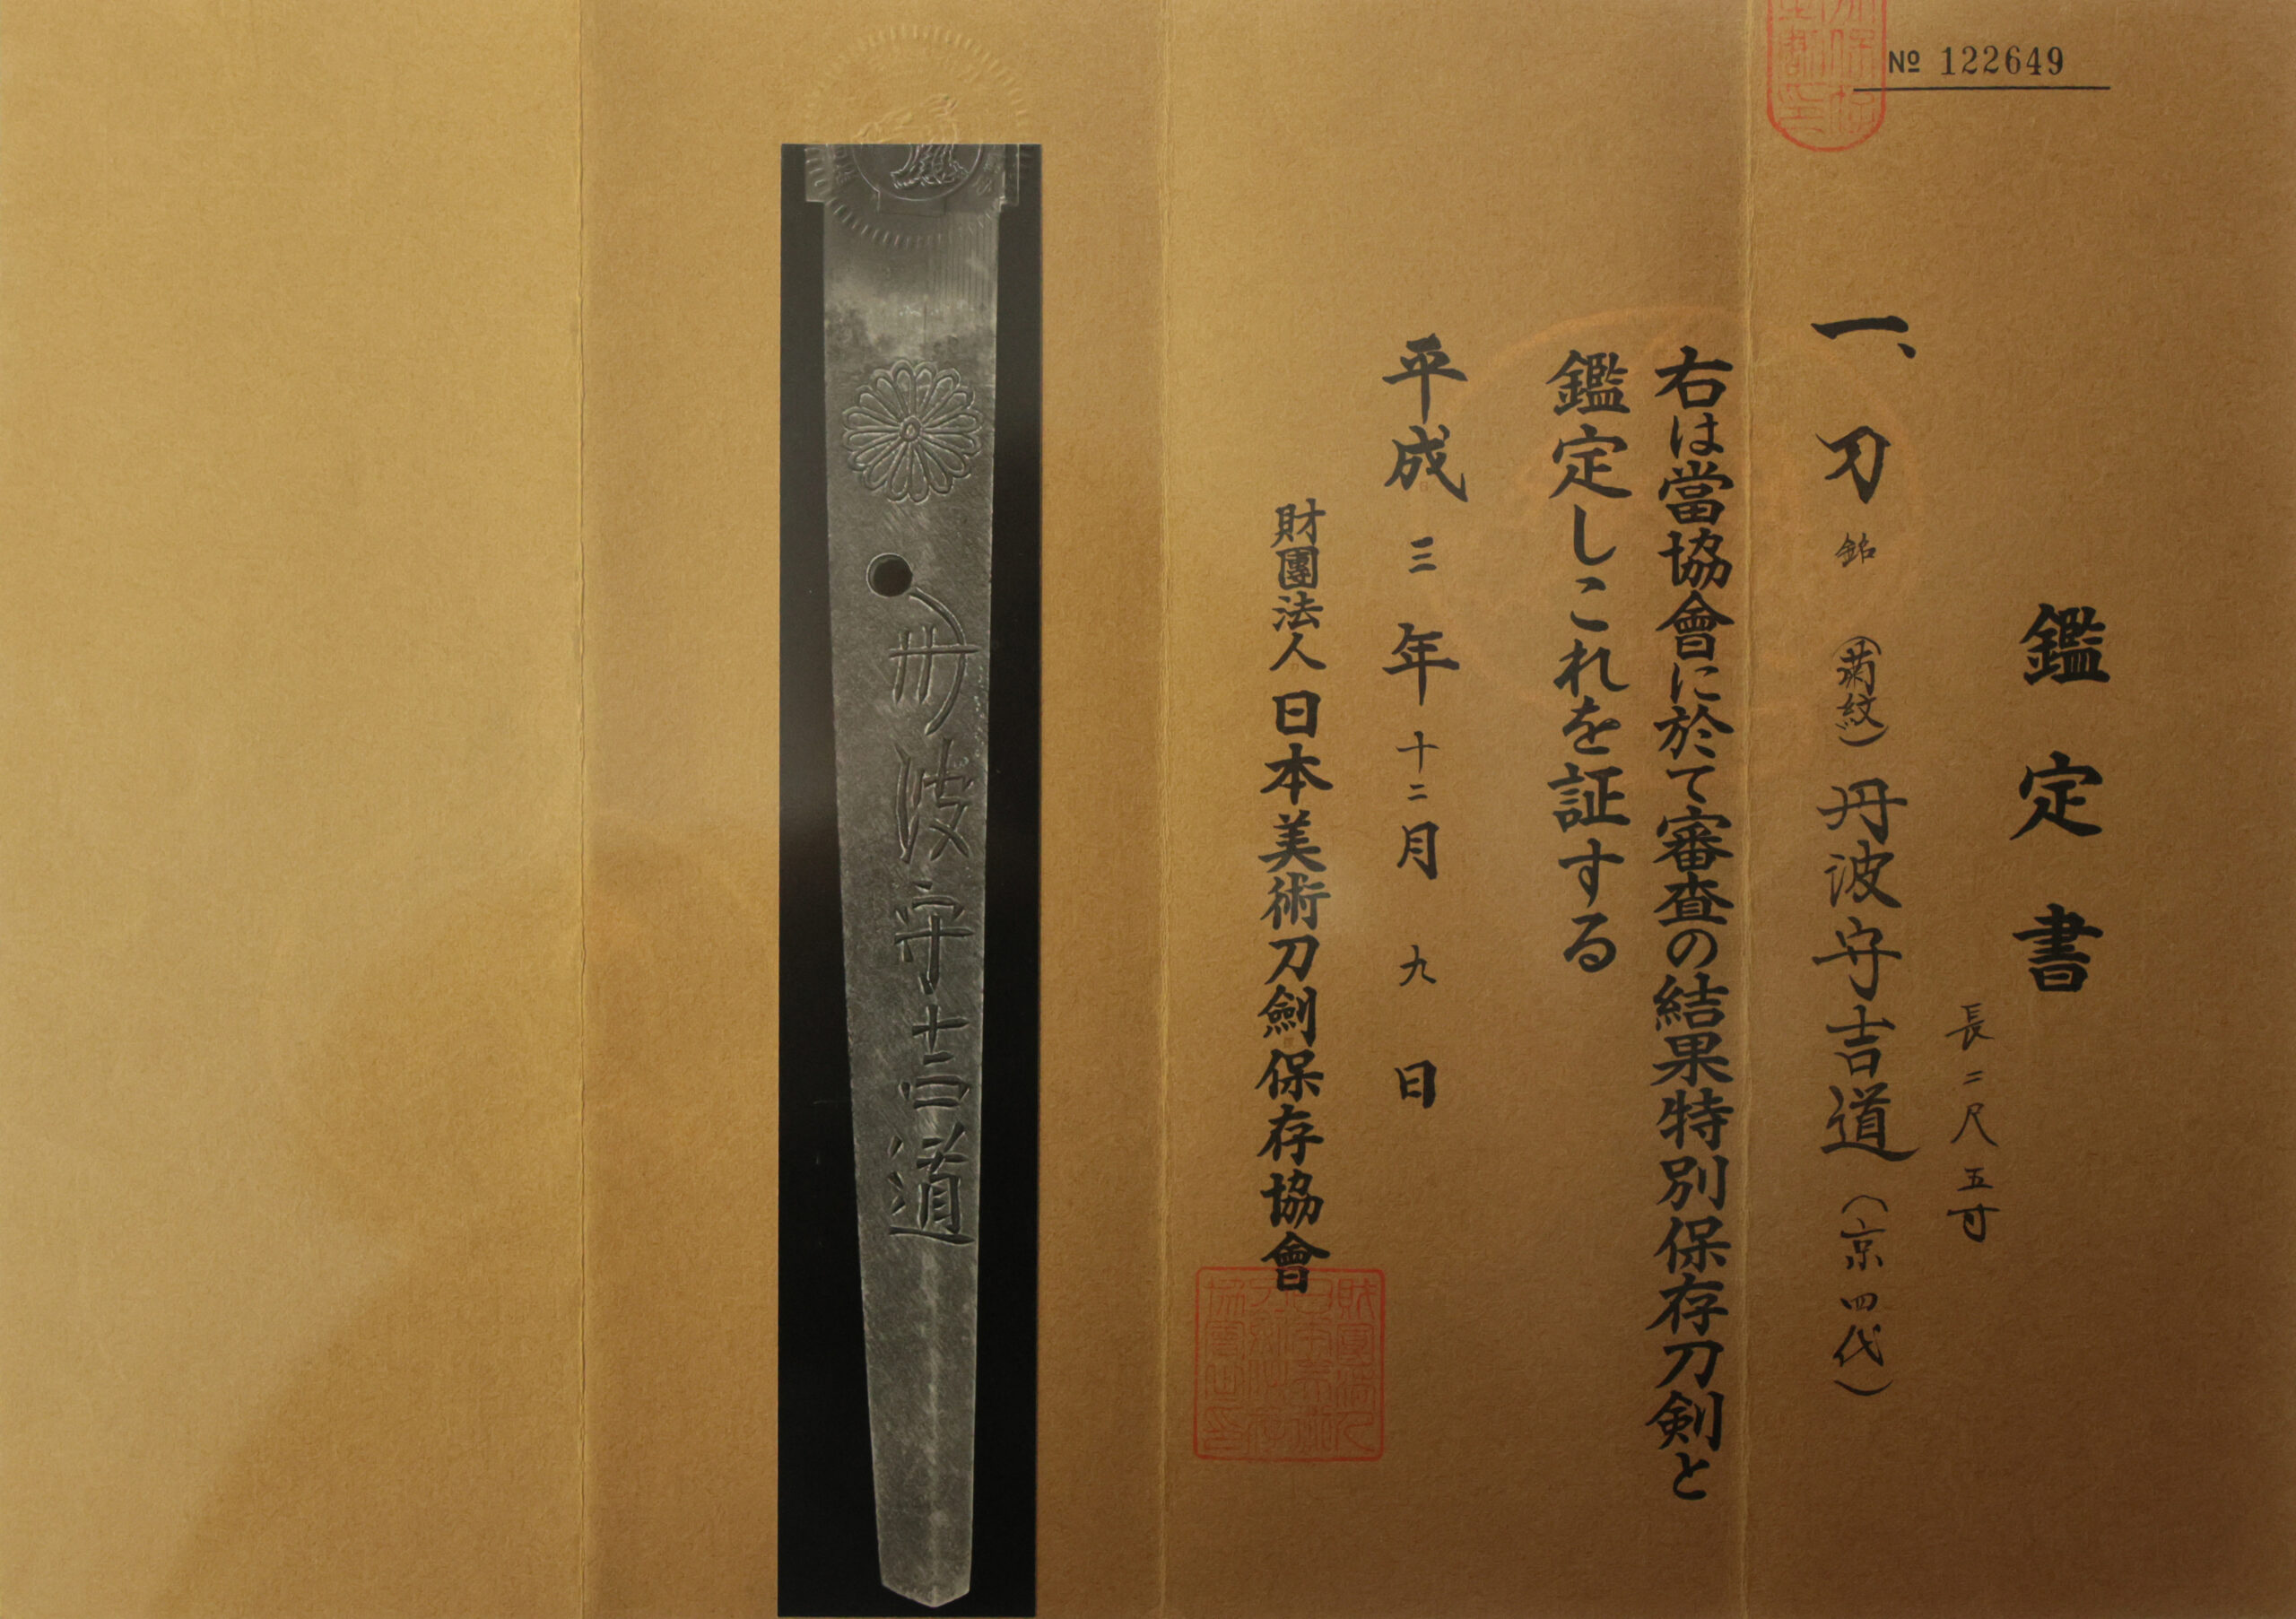 № 122649
鑑定書
長二尺五寸
一、刀 銘 (菊紋) 丹波守吉道 (京四代)
右は當協會に於て審査の結果特別保存刀剣と
鑑定しこれを証する
平成三年十二月九日
財團法人日本美術刀劍保存協會
丹波守吉道